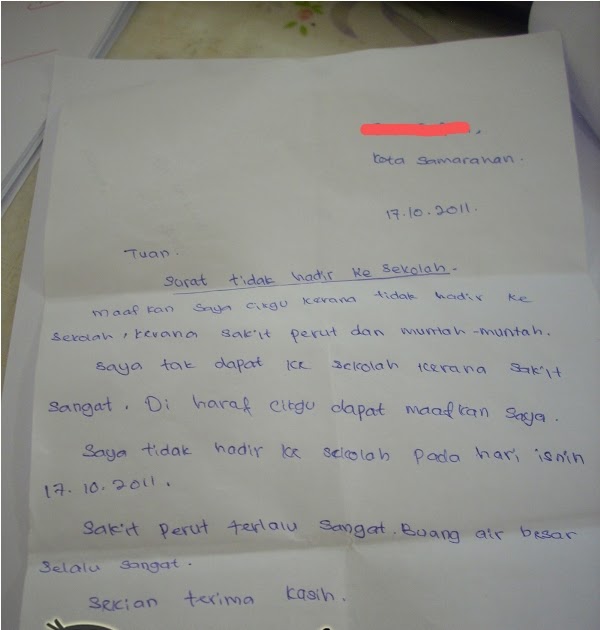 Kota Samarahan.
17.10.2011.
Tuan.
Surat tidak hadir ke sekolah.
maafkan saya cikgu kerana tidak hadir ke
sekolah, kerana sakit perut dan muntah-muntah.
saya tak dapat ke sekolah kerana sakit
sangat. Di haraf cikgu dapat maafkan saya.
Saya tidak hadir ke sekolah pada hari isnin
17.10.2011.
Sakit perut terlalu sangat. Buang air besar
selalu sangat.
sekian terima kasih.